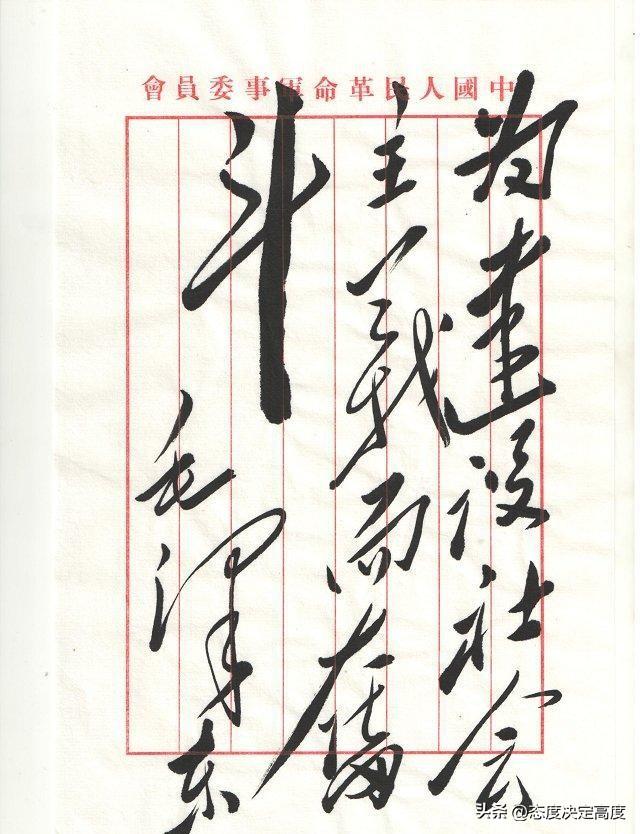 中國人民革命軍事委員會
为建设社会
主義而奮
斗
毛泽东
头条 @态度决定高度